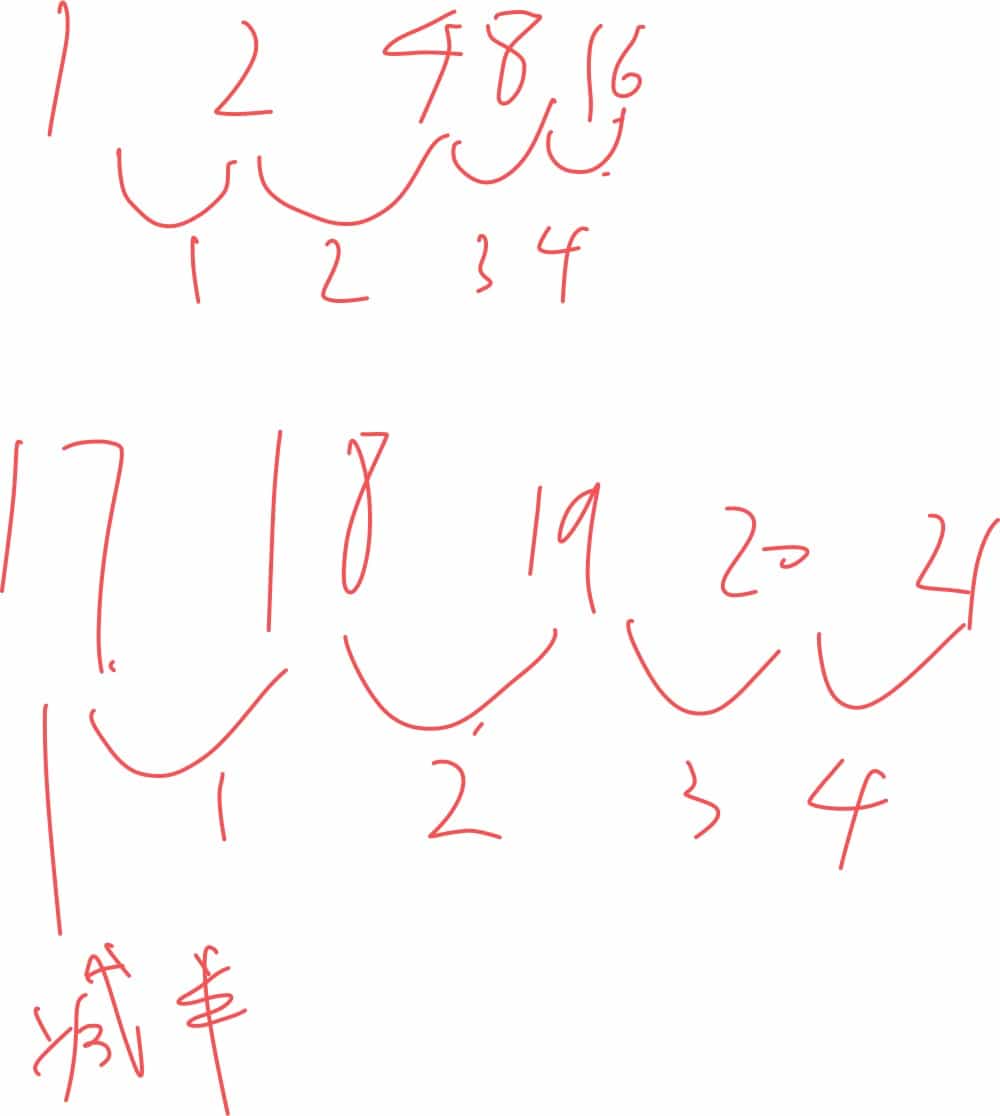 1 2 4 8 16
1 2 3 4
17 18 19 20 21
1 2 3 4
减半